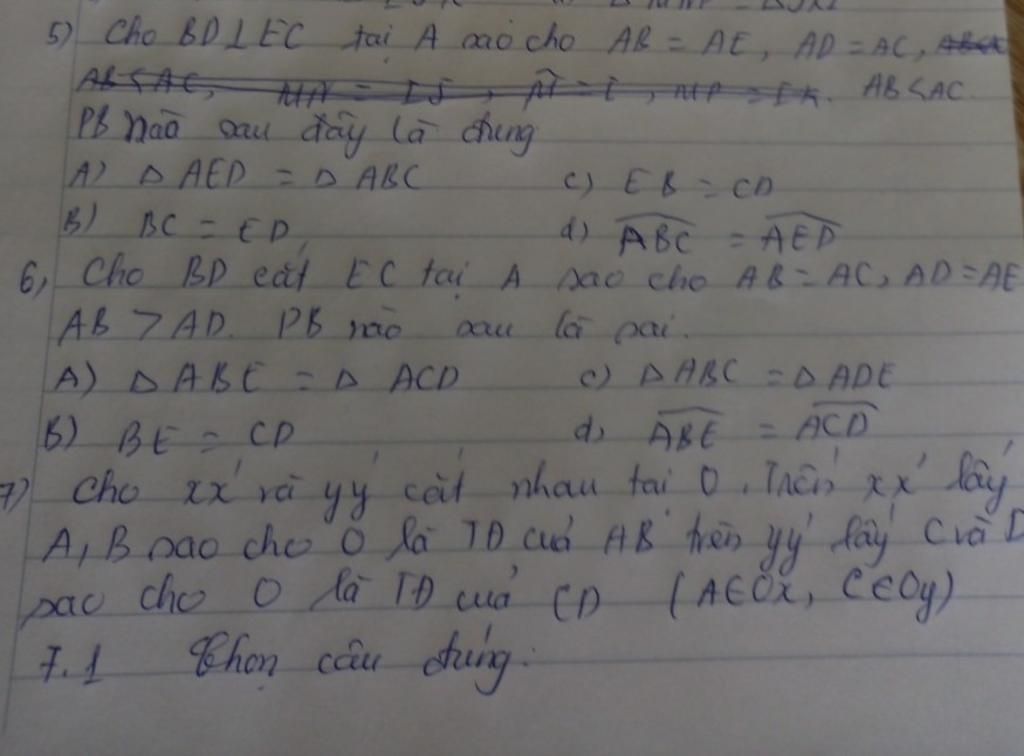 5) Cho BD⊥EC tại A sao cho AB = AE, AD = AC,
AB<AC.
PB nào sau đây là đúng
A) Δ AED = Δ ABC c) EB = CD
B) BC = ED d) \widehat{ABC} = \widehat{AED}
6, Cho BD cắt EC tại A sao cho AB = AC, AD = AE
AB > AD. PB nào sau là sai.
A) Δ ABE = Δ ACD c) Δ ABC = Δ ADE
B) BE = CD d, \widehat{ABE} = \widehat{ACD}
7) Cho xx' và yy' cắt nhau tại O. Trên xx' lấy
A, B sao cho O là TĐ của AB trên yy' lấy C và D
sao cho O là TĐ của CD (A∈Ox, C∈Oy)
7.1 Chọn câu đúng: